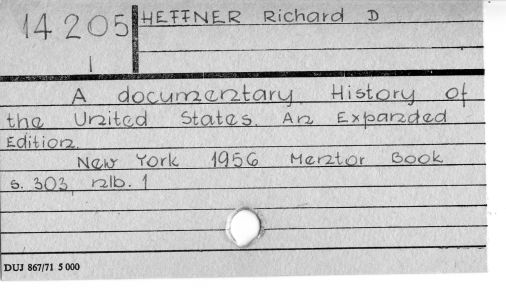 14205
I
HEFFNER Richard D
A documentary History of
the United States. An Expanded
Edition.
New York 1956 Mentor Book
s. 303, nlb. 1
DUJ 867/71 5 000